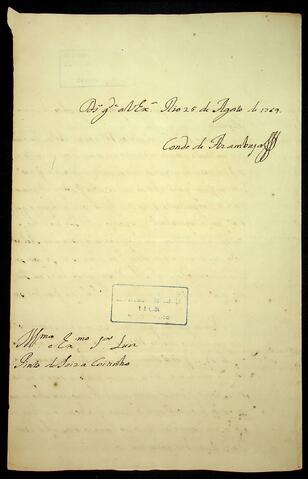 Ds. gde. a V Exa. Rio 26 de Agosto de 1769.
Conde de Azambuja
Illmo e Exmo Sor Luiz
Pinto de Souza Coutinho